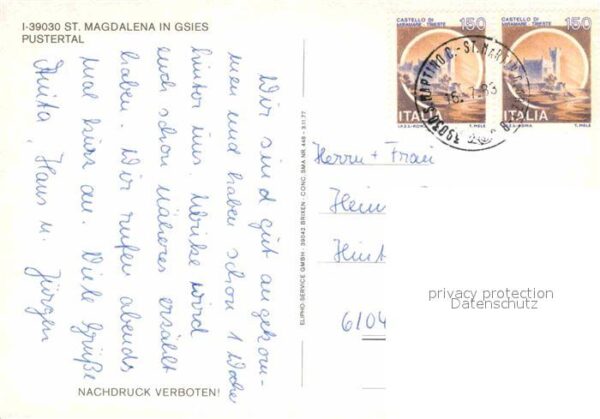 I-39030 ST. MAGDALENA IN GSIES
PUSTERTAL
Wir sind gut angekom-
men und haben schon 1 Woche
hinter uns. Ulrike wird
euch schon näheres erzählt
haben. Wir rufen abends
mal kurz an. Viele Grüße
Anita, Hans u. Jürgen
NACHDRUCK VERBOTEN!
ELIPHO-SERVICE GMBH - 39042 BRIXEN - CONC. SMA NR. 446 - 3.11.77
CASTELLO DI
MIRAMARE - TRIESTE
150
ITALIA
I.P.Z.S. - ROMA T. MELE
CASTELLO DI
MIRAMARE - TRIESTE
150
ITALIA
I.P.Z.S. - ROMA T. MELE
39030 S. MARTINO C. - ST. MARTIN
16.7.83
Herrn + Frau
Hein
Hint
6104
privacy protection
Datenschutz